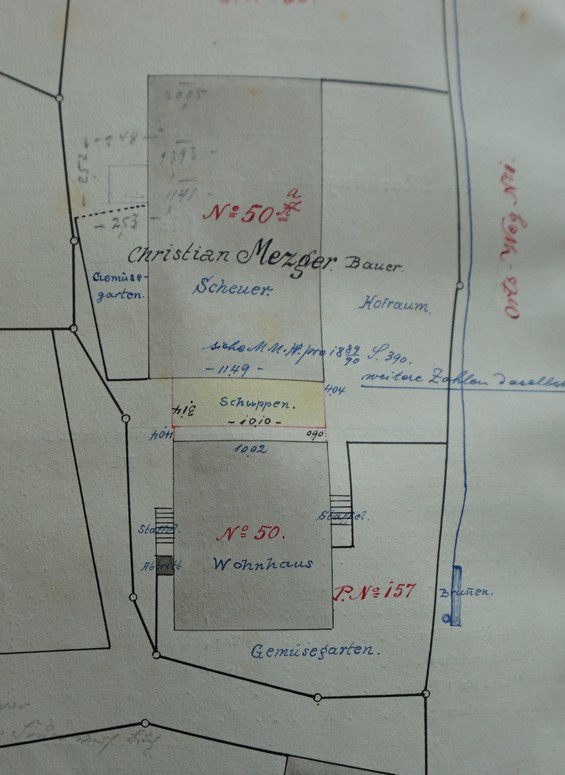 2005
- 248 -
- 252 -
1393
1141
- 253
No 50 a
Christian Mezger. Bauer.
Gemüse-
garten.
Scheuer.
Hofraum.
Weg No.
siehe M. U. H. pro 1889/90 S. 390.
- 1149 -
weitere Zahlen
404
Schuppen.
314
- 10,10 -
404
090
1002
Staffel.
Staffel.
No 50.
Abtritt
Wohnhaus
P. No 157
Brunnen.
Gemüsegarten.